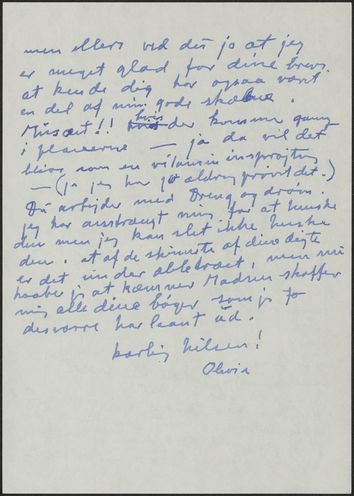 men ellers ved du jo at jeg
er meget glad for dine breve.
at kende dig har ogsaa været
en del af min gode skæbne.
Musæet!! hvis der kommer gang
i planerne — ja da vil det
blive som en vitamin insprøjtning
— (ja jeg har jo aldrig prøvet det.)
Du arbejder med Dreng og drøm.
jeg har anstrængt mig for at huske
den men jeg kan slet ikke huske
den. at af de skønneste af dine digte
er det under æbletræet, men nu
haaber jeg at Madsen skaffer
mig alle dine bøger som jo
desværre har laant ud.
kærlig hilsen!
Olivia